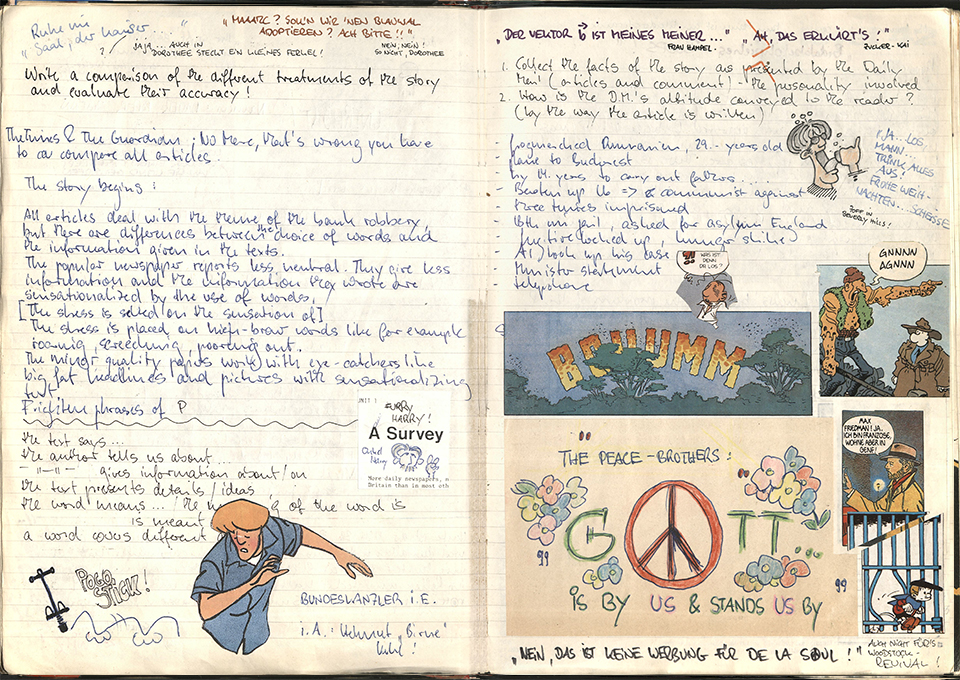 Ruhe im
"Saal, der Kaiser...
?
"MAAARC? SOLL'N WIR 'NEN BLAUWAL
ADOPTIEREN? ACH BITTE!!"
JAJA... AUCH IN
DOROTHEE STECKT EIN KLEINES FERKEL!
NEIN, NEIN!
SO NICHT, DOROTHEE
Write a comparison of the different treatments of the story
and evaluate their accuracy!
The Times & The Guardian; No Mere, that's wrong you have
to compare all articles.
The story begins:
All articles deal with the theme of the bank robbery,
but there are differences between the choice of words and
the information given in the texts.
The popular newspaper reports less neutral. They give less
information and the information they wrote are
sensationalized by the use of words.
[The stress is on the sensation of]
The stress is placed on high-brow words like for example
roaring, screeching, pouring out.
The minor quality papers work with eye-catchers like
big fat headlines and pictures with sensationalizing
text
phrases of P
UNIT 1
FURRY
HARRY!
A Survey
More daily newspapers,
Britain than in most oth
the text says...
the author tells us about...
-"- gives information about/on
the text presents details/ideas
the word means... the of the word is
is meant
a word covers different
POGO-
STICK!
BUNDESKANZLER i.E.
i.A.: Helmut "Birne"
Kohl!
"DER VEKTOR b IST MEINES MEINER..."
FRAU HAMPEL
"AH, DAS ERKLÄRT'S!"
ZUCKER-KAI
1. Collect the facts of the story as presented by the Daily
Mail (articles and comment) - the personality involved
2. How is the D.M.'s attitude conveyed to the reader?
(by the way the article is written)
- Rumanian, 29-years old
- came to Budapest
- by 14 years to carry out
- Beaten up 16 => communist against
- three times imprisoned
- 18th in jail, asked for asylum England
- fugitive locked up, hunger strike
- AI took up his case
- Minister statement
- telephone
"JA... LOS,
MANN...
TRINK ALLES
AUS!
FROHE WEIH-
NACHTEN... SCHEISSE
ZOFF IN
BEVERLY HILLS!
?!!
WAS IST
DENN
DA LOS?
GNNNN
AGNNN
BROUMM
MAX
FRIEDMAN! JA.
ICH BIN FRANZOSE,
WOHNE ABER IN
GENF!
"
THE PEACE-BROTHERS:
"GOTT..."
IS BY US & STANDS US BY
"NEIN, DAS IST KEINE WERBUNG FÜR DE LA SOUL!"
AUCH NICHT FÜR'S
WOODSTOCK-
REVIVAL!